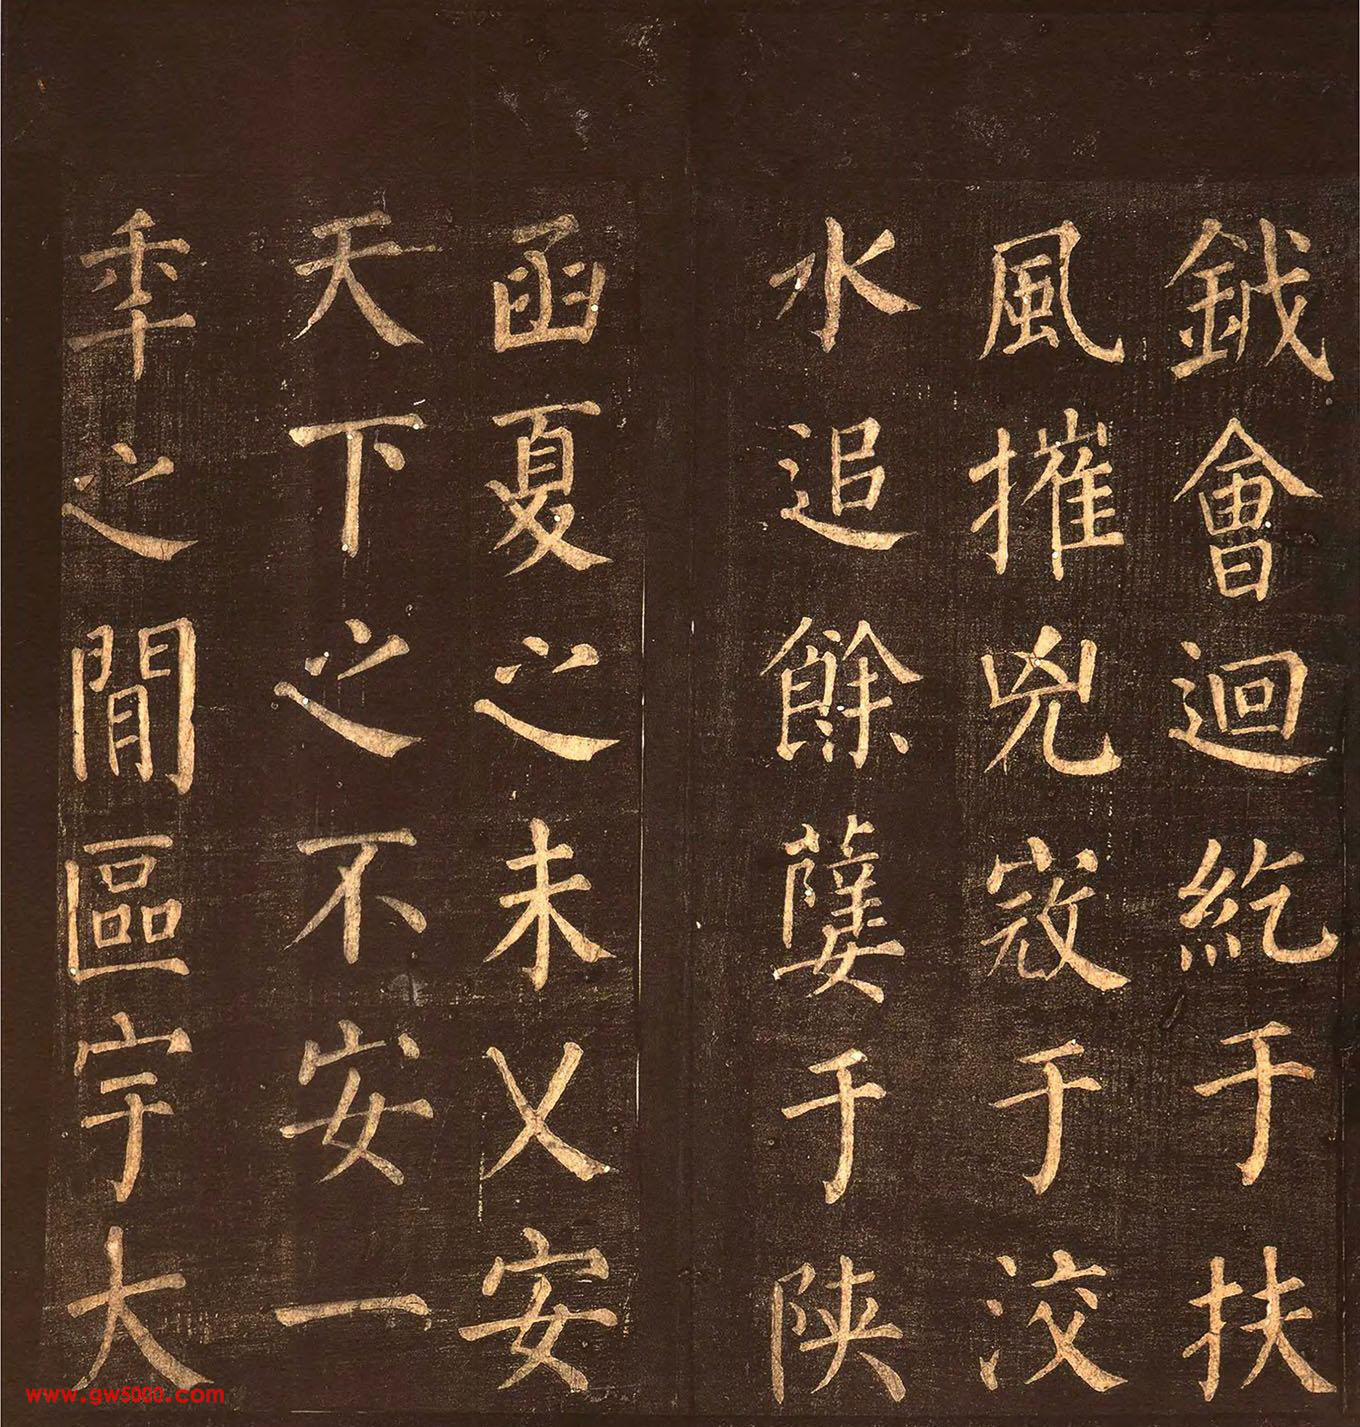 鉞會迴紇于扶
風摧兇寇于洨
水追餘孽于陝
函夏之未乂安
天下之不安一
年之閒區宇大
www.gw5000.com